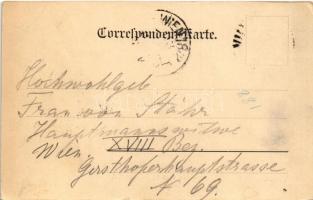 Correspondenz-Karte.
WIEN
Hochwohlgeb
Frau von Stöhr
Hauptmannswitwe
Wien XVIII Bez.
Gersthoferhauptstrasse
N 69.